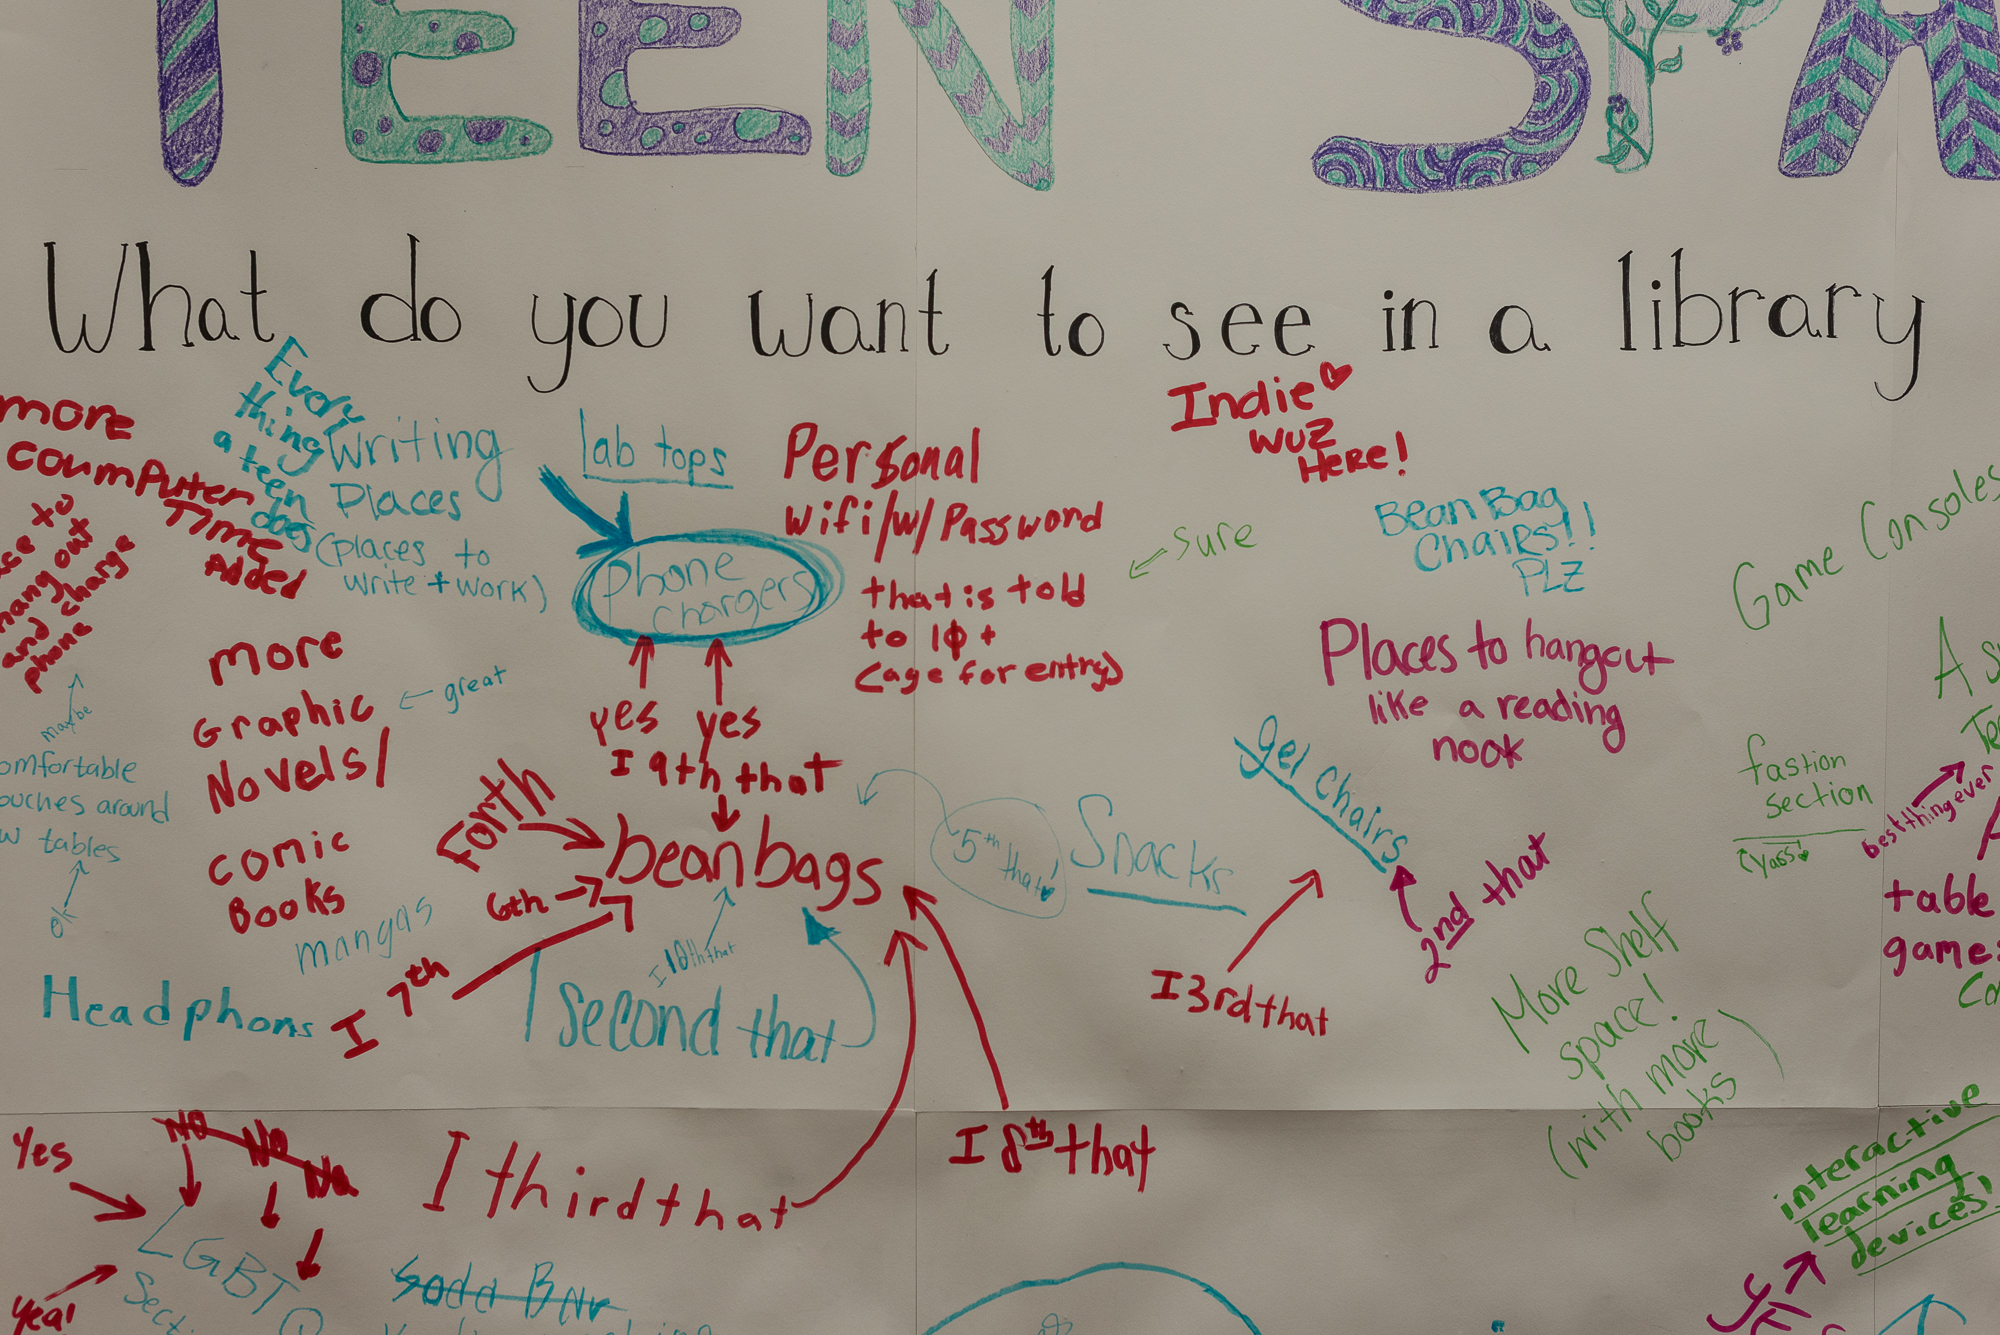 TEEN SPA
What do you want to see in a library
more
coumputer
Time
Added
Every
thing
a teen
does
Writing
Places
(places to
write + work)
lab tops
phone
chargers
Personal
Wifi/w/Password
that is told
to 10 +
(age for entry)
← sure
Indie♡
wuz
Here!
Bean Bag
Chairs!!
PLZ
Game Consoles
hang out
and charge
phone
maybe
omfortable
ouches around
tables
ok
more
Graphic
Novels/
comic
Books
← great
mangas
Headphons
yes yes
I 9th that
Forth
6th
I 7th
beanbags
I 10th that
I second that
5th that
Snacks
gel Chairs
2nd that
I 3rd that
Places to hangout
like a reading
nook
fastion
section
(Yass!
best thing ever
table
games
More Shelf
space!
(with more
books)
interactive
learning
devices!
Yes
No No No
Yea!
LGBT
I third that
I 8th that
Soda Bar